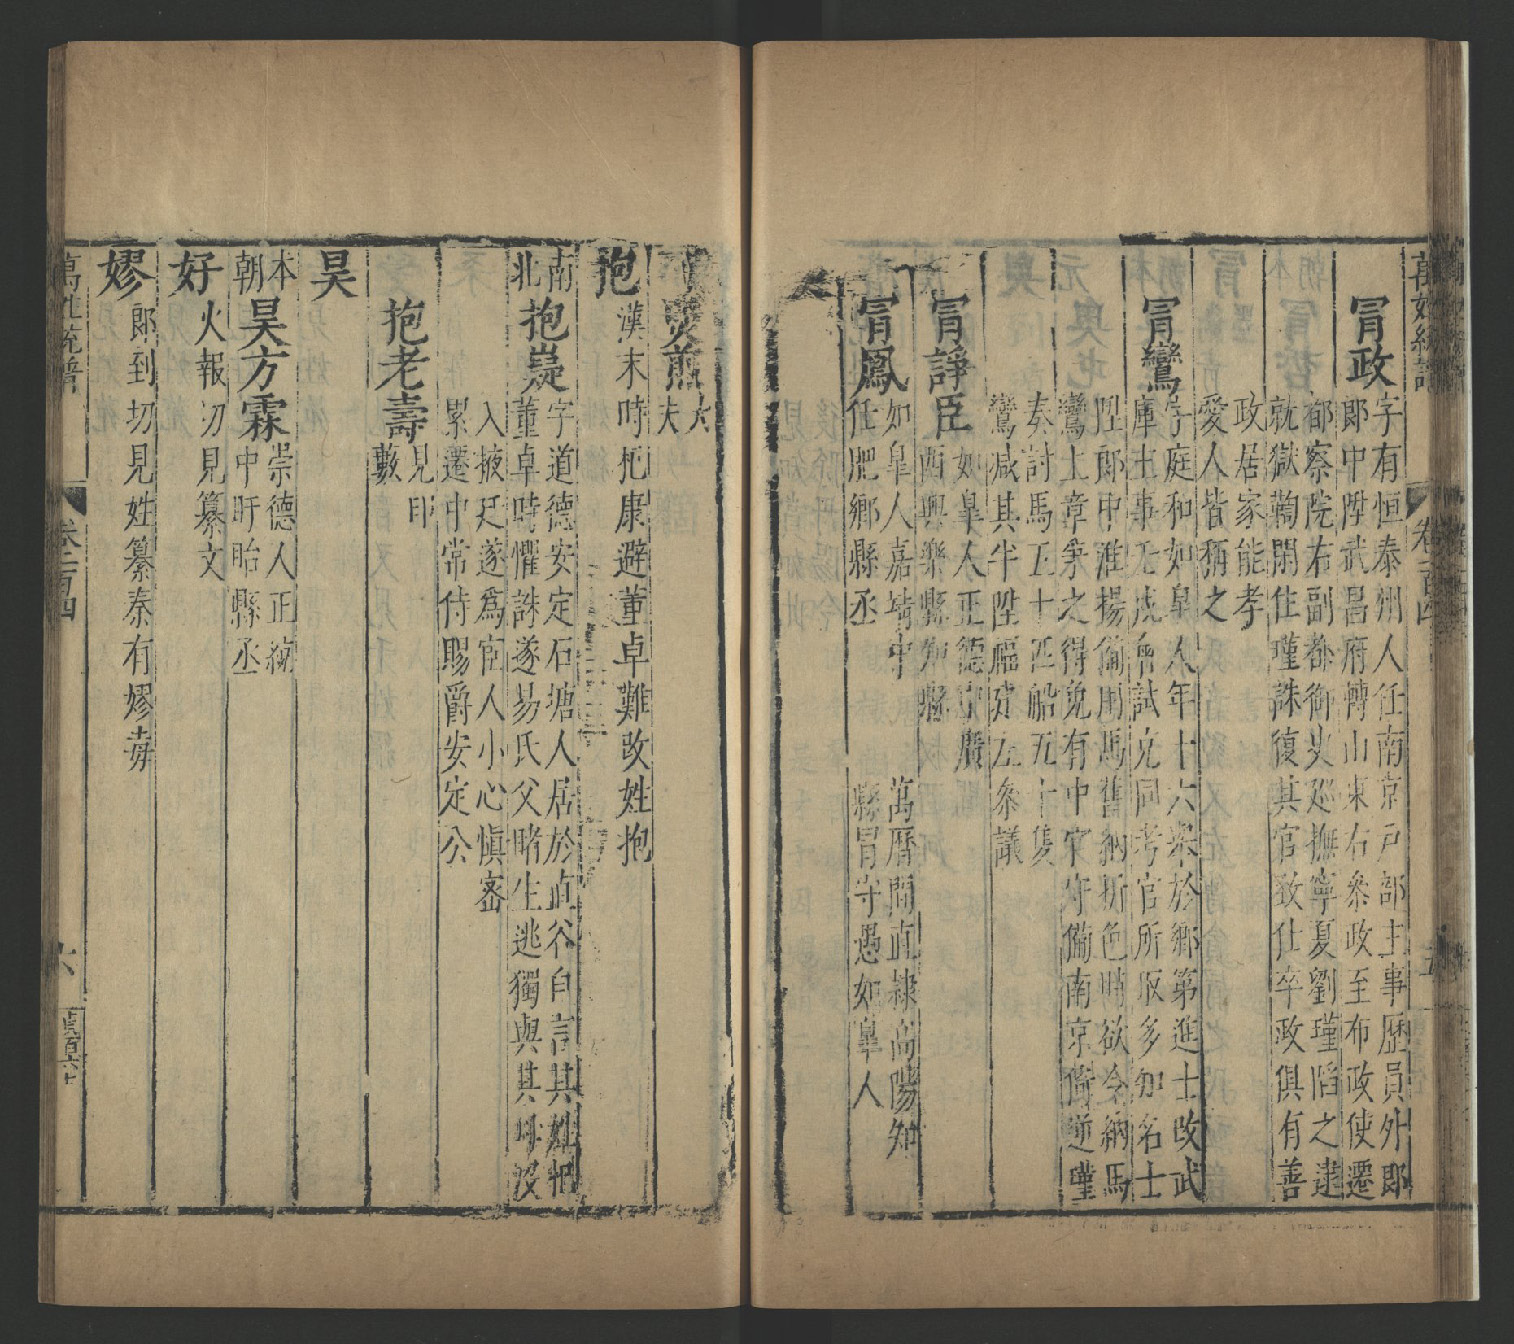 萬姓統譜
卷一百四
五
冒政
字有恒泰州人任南京戶部主事歷員外郎
郎中陞武昌府轉山東右叅政至布政使遷
都察院右副都御史廵撫寧夏劉瑾䧟之逮
就獄鞫閑住瑾誅復其官致仕卒政俱有善
政居家能孝
愛人皆稱之
冒鸞
字庭和如臯人年十六舉於鄉第進士改武
庫主事壬戌會試克同考官所取多知名士
陞郎中淮揚偹用馬舊納折色時欲令納馬
鸞上章爭之得免有中官守偹南京倚逆瑾
奏討馬五十匹船五十隻
鸞减其半陞福建左叅議
冒諍臣
如臯人正德中廣
西興樂縣知縣
冒鳳
如臯人嘉靖中
任肥鄉縣丞
萬曆間直隷高陽知
縣冒守愚如臯人
炅煎
大
夫
抱
漢末時杷康避董卓難改姓抱
南
北
抱嶷
字道德安定石塘人居於直谷自言其姓杷
董卓時懼誅遂易氏父睹生逃獨與其母没
入掖廷遂爲宦人小心愼宻
累遷中常侍賜爵安定公
抱老壽
見印
藪
昊
本
朝
昊方霖
崇德人正統
中盱眙縣丞
好
火報切見纂文
嫪
郎到切見姓纂秦有嫪毐
萬姓統譜
卷一百四
六